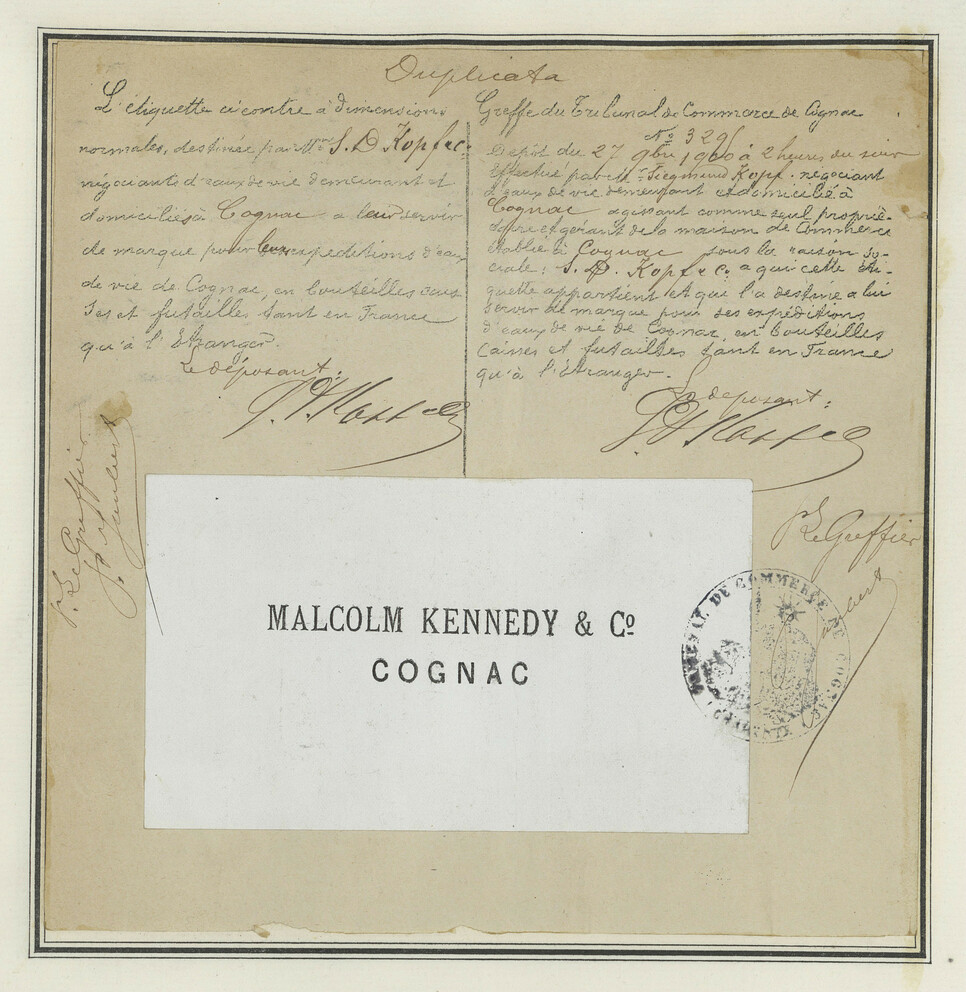 Duplicata
L'étiquette ci contre à dimensions
normales, destinée par Mrs S. D Kopf & Co
négociants d'eaux de vie demeurant et
domiciliés à Cognac a leur servir
de marque pour leurs expeditions d'eaux
de vie de Cognac, en bouteilles cais
ses et futailles tant en France
qu'à l'Etranger.
Le déposant:
P. Le Greffier
Greffe du Tribunal de Commerce de Cognac
No 329
Dépôt du 27 9bre 1900 à 2 heures du soir
effectué par M. Siegmund Kopf. négociant
d'eaux de vie demeurant et domicilié à
Cognac agissant comme seul proprié-
taire et gérant de la maison de Commerce
établie à Cognac sous la raison so-
ciale: S. D. Kopf & Co. a qui cette éti-
quette appartient et qui l'a destine a lui
servir de marque pour ses expéditions
d'eaux de vie de Cognac, en bouteilles
Caisses et futailles tant en France
qu'à l'étranger.
Le deposant:
P. Le Greffier
MALCOLM KENNEDY & Co
COGNAC
TRIBUNAL DE COMMERCE DE COGNAC